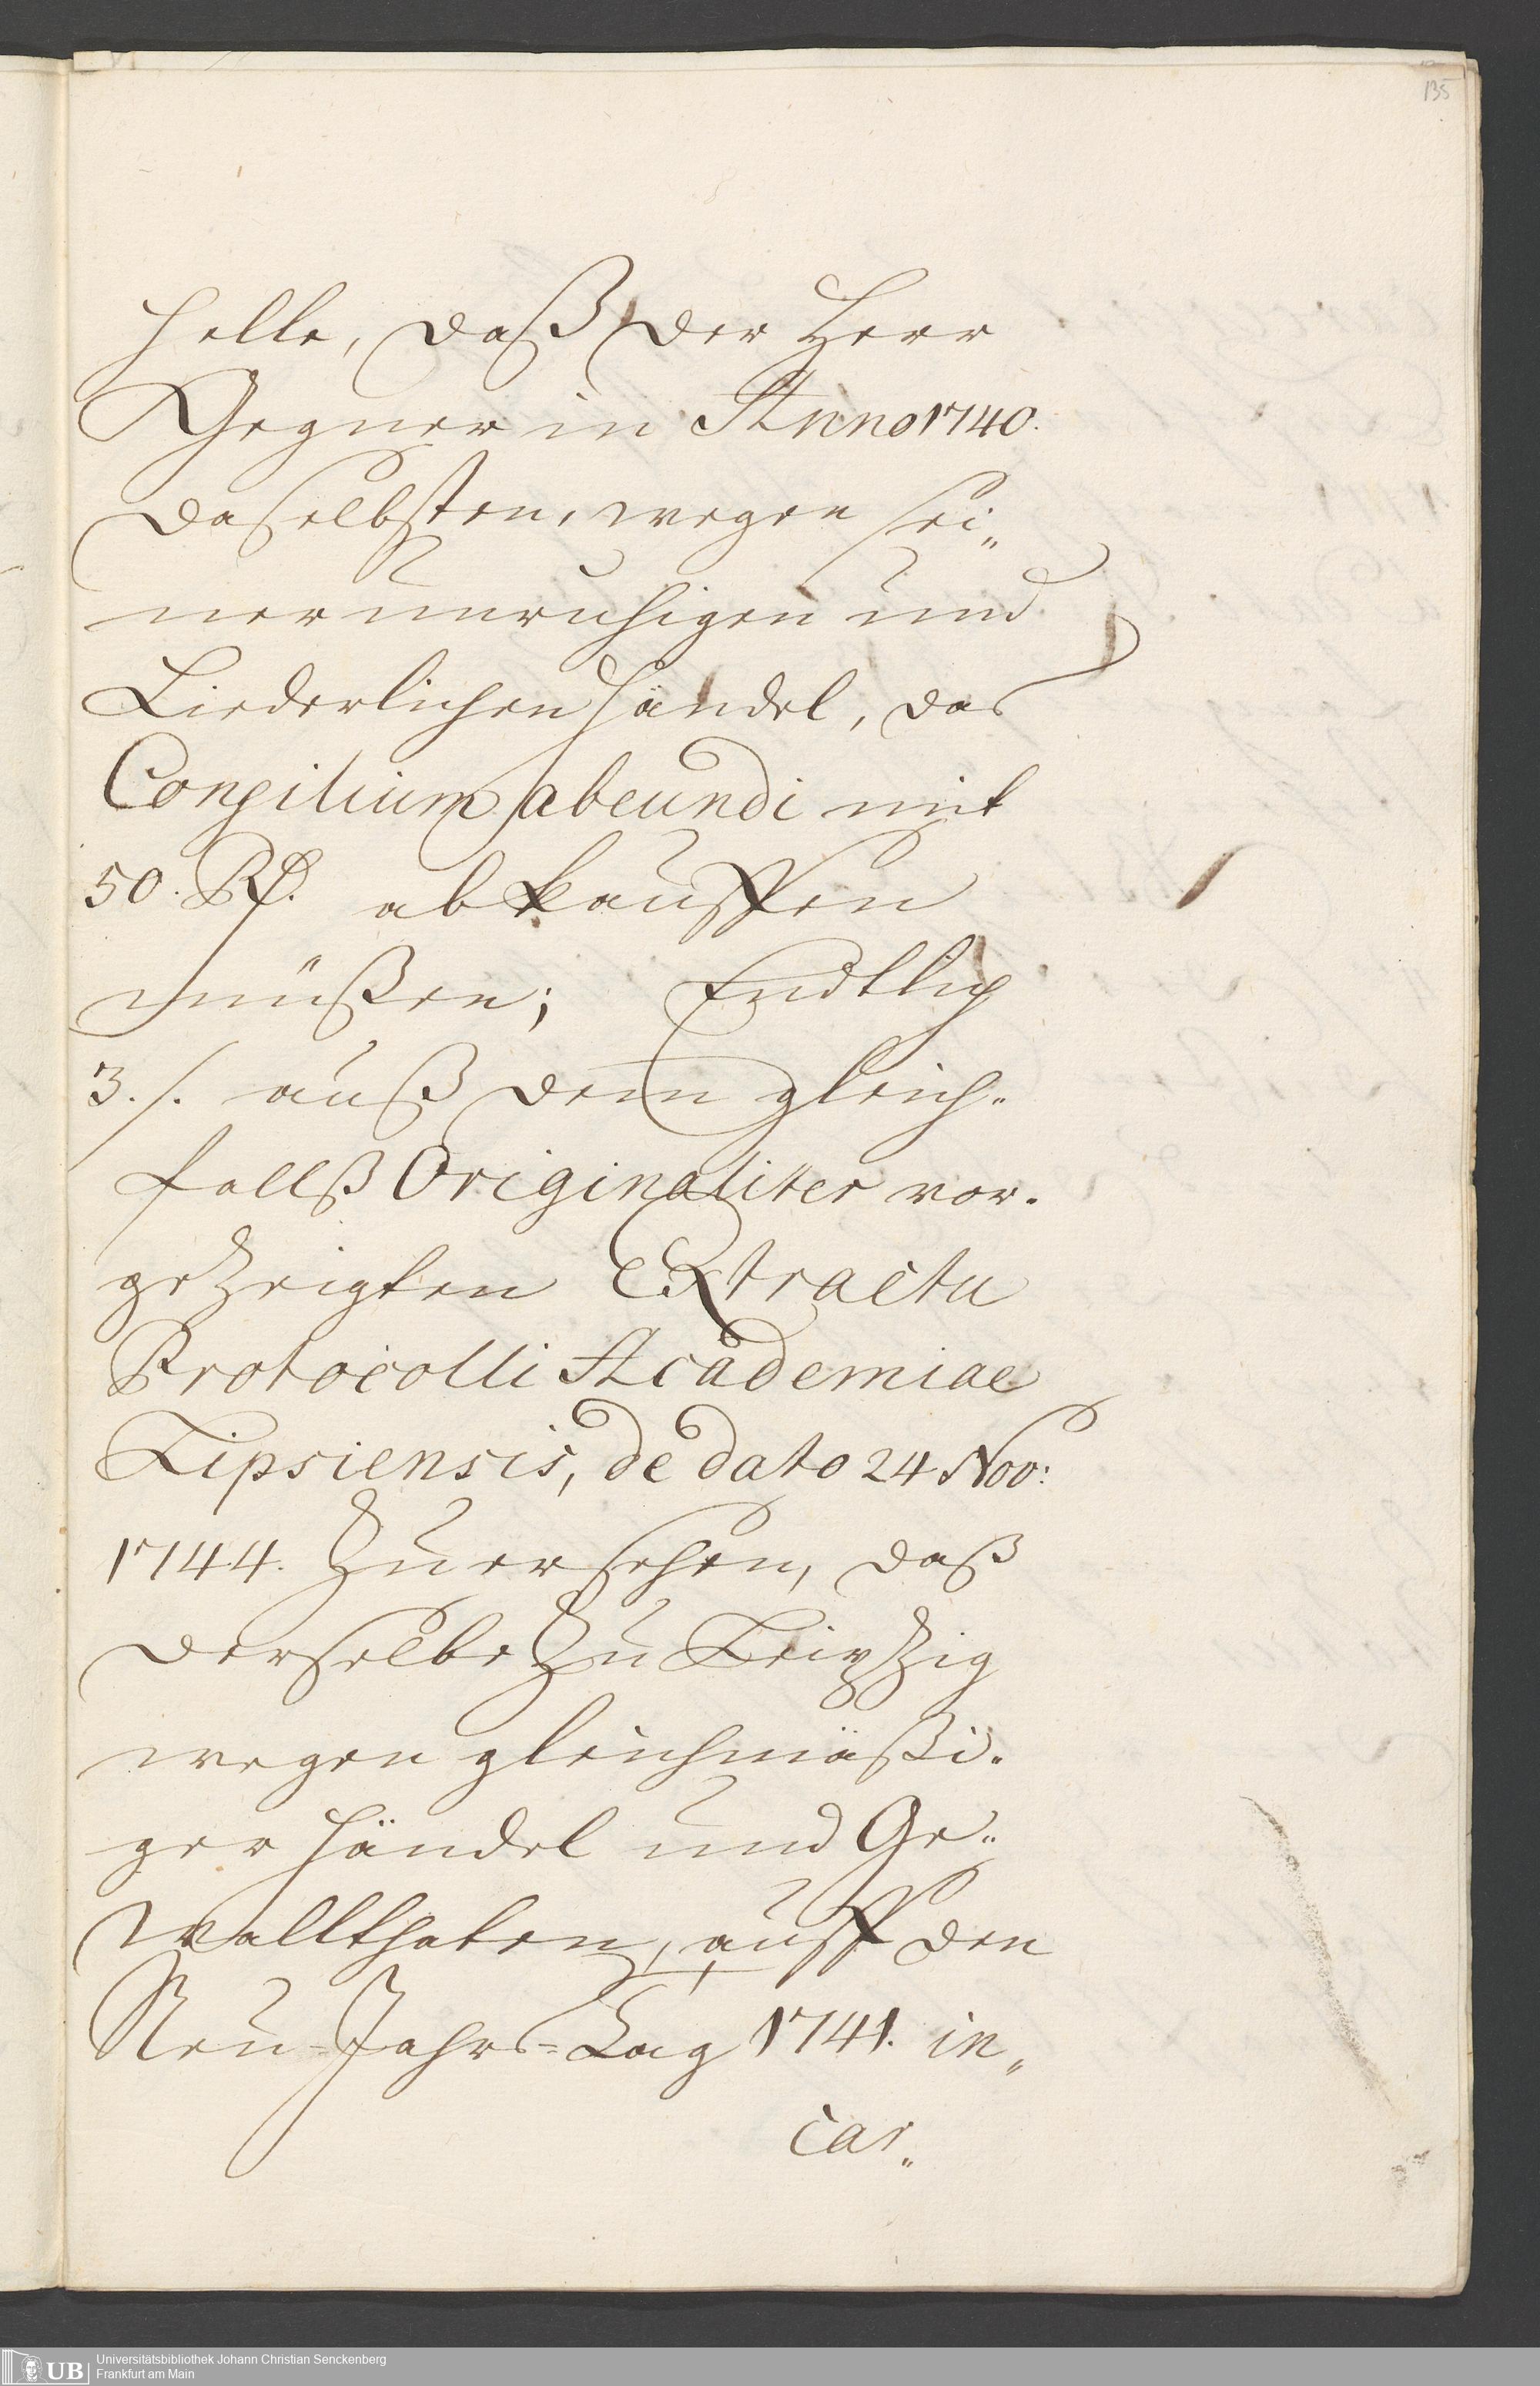 135
helle, daß der Herr
Gegner in Anno 1740.
daselbsten, wegen sei„
ner unruhigen und
Liederlichen Händel, das
Consilium abeundi mit
50. Rf. abkauffen
müßen; Endtlich
3./. auß dem gleich„
fallß Originaliter vor„
gezeigten Extractu
Protocolli Academiae
Lipsiensis, de dato 24 Nov:
1744. zu ersehen, daß
derselbe zu Leipzig
wegen gleichmäßi„
ger Händel und Ge„
wallthaten, auff den
Neu=Jahrs=Tag 1741. in„
car„
UB Universitätsbibliothek Johann Christian Senckenberg
Frankfurt am Main